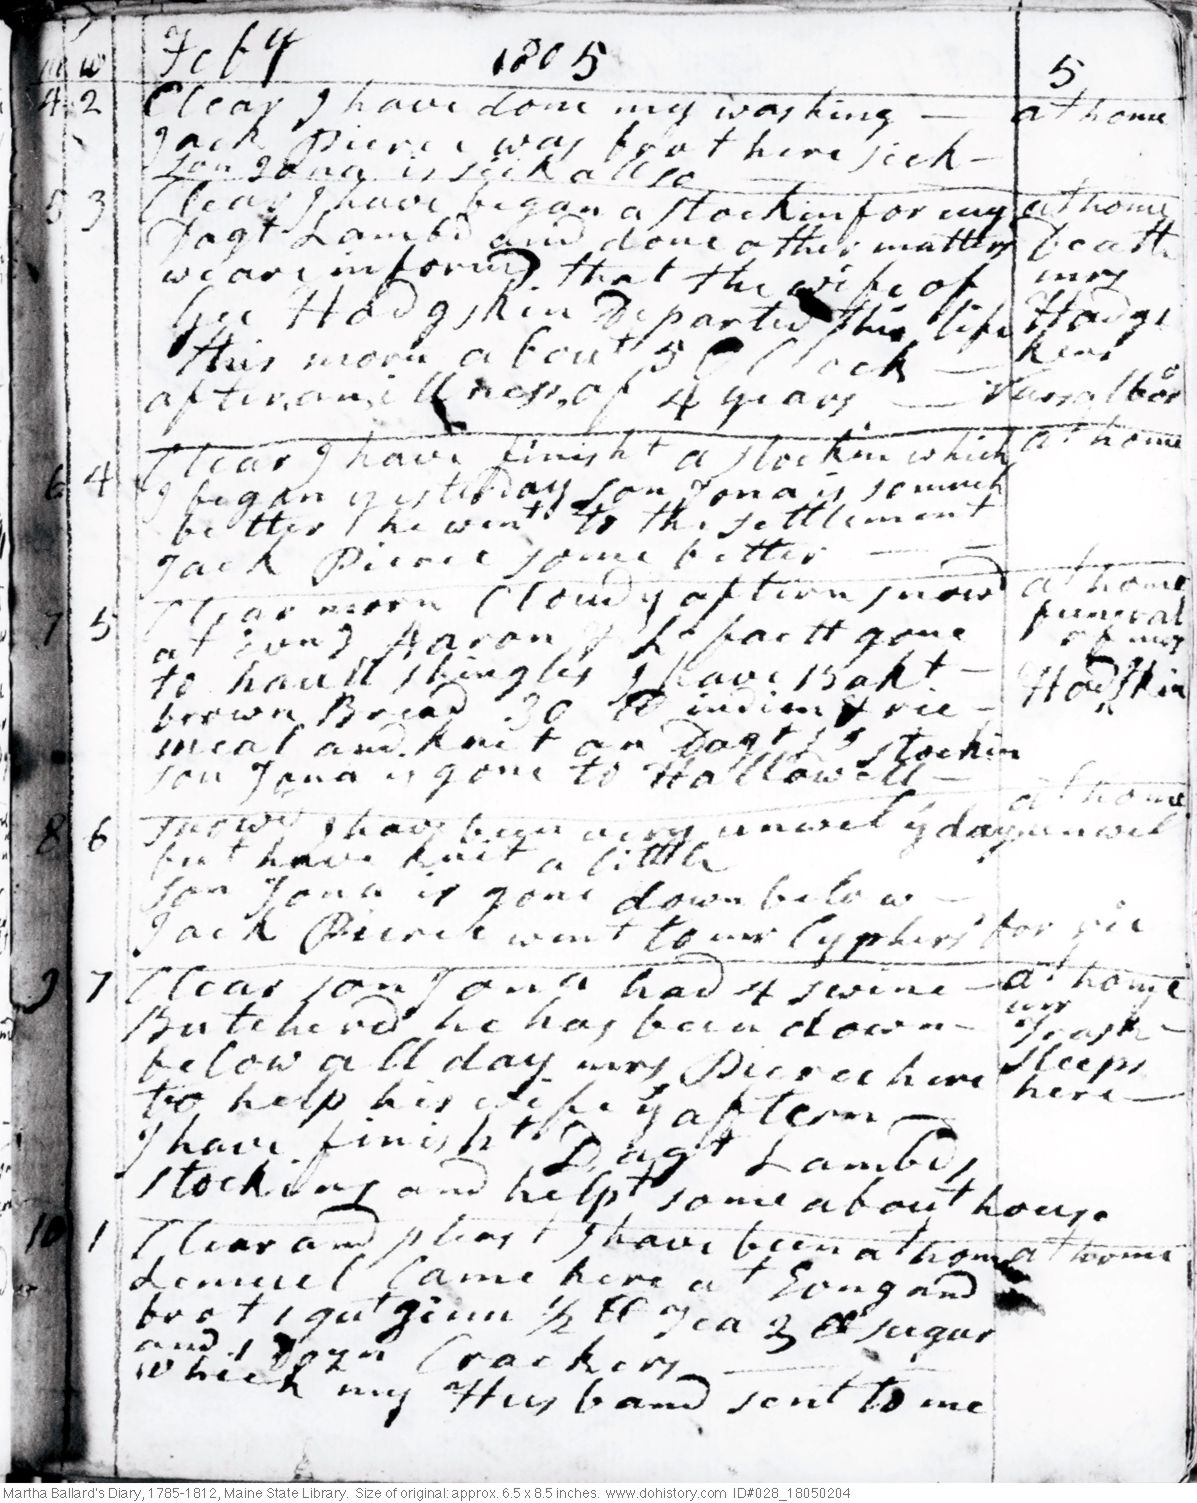 m w Feby 1805 5
4 2 Clear I have done my washing — at home
Jack Pierce was brot here sick —
son Jona is sick allso
5 3 Clear I have began a stockin for my at home
Dagt Lambd and done other matters Death
we are informd that the wife of mrs
Departed this life Hodgs
this morn about 5 O Clock — kens
after an illness of 4 years — Vassalboro
6 4 Clear I have finisht a stockin which at home
I began yesterday son Jona is so much
better he went to the settlement
Jack Pierce some better — —
7 5 Clear morn Cloudy aftern snowd at home
at Evng Aaron & gone funeral
to haull shingles I have Bakt — of mrs
brown Bread 30 lb indien & rie — Hodgkin
meal and knit on Dagt Ls stockin
son Jona is gone to Hallowell —
8 6 Snowd I have been very unwell ys day at home unwel
but have knit a little
son Jona is gone down below —
Jack Pierce went to mr Cyphers for
9 7 Clear son Jona had 4 swine — at home
Butcherd he has been down — mr
below all day mrs Pierce here sleeps
to help his wife ys aftern — here —
I have finisht Dagt Lambds
stockings and helpt some about house
10 1 Clear and pleast I have been at home at home
Lemuel Came here at Evng and
brot 1 qut ginn 1/2 lb Tea 3 lb sugar
and 1 Dozn Crackers —
which my Husband sent to me
Martha Ballard's Diary, 1785-1812, Maine State Library. Size of original: approx. 6.5 x 8.5 inches. www.dohistory.com ID#028_18050204